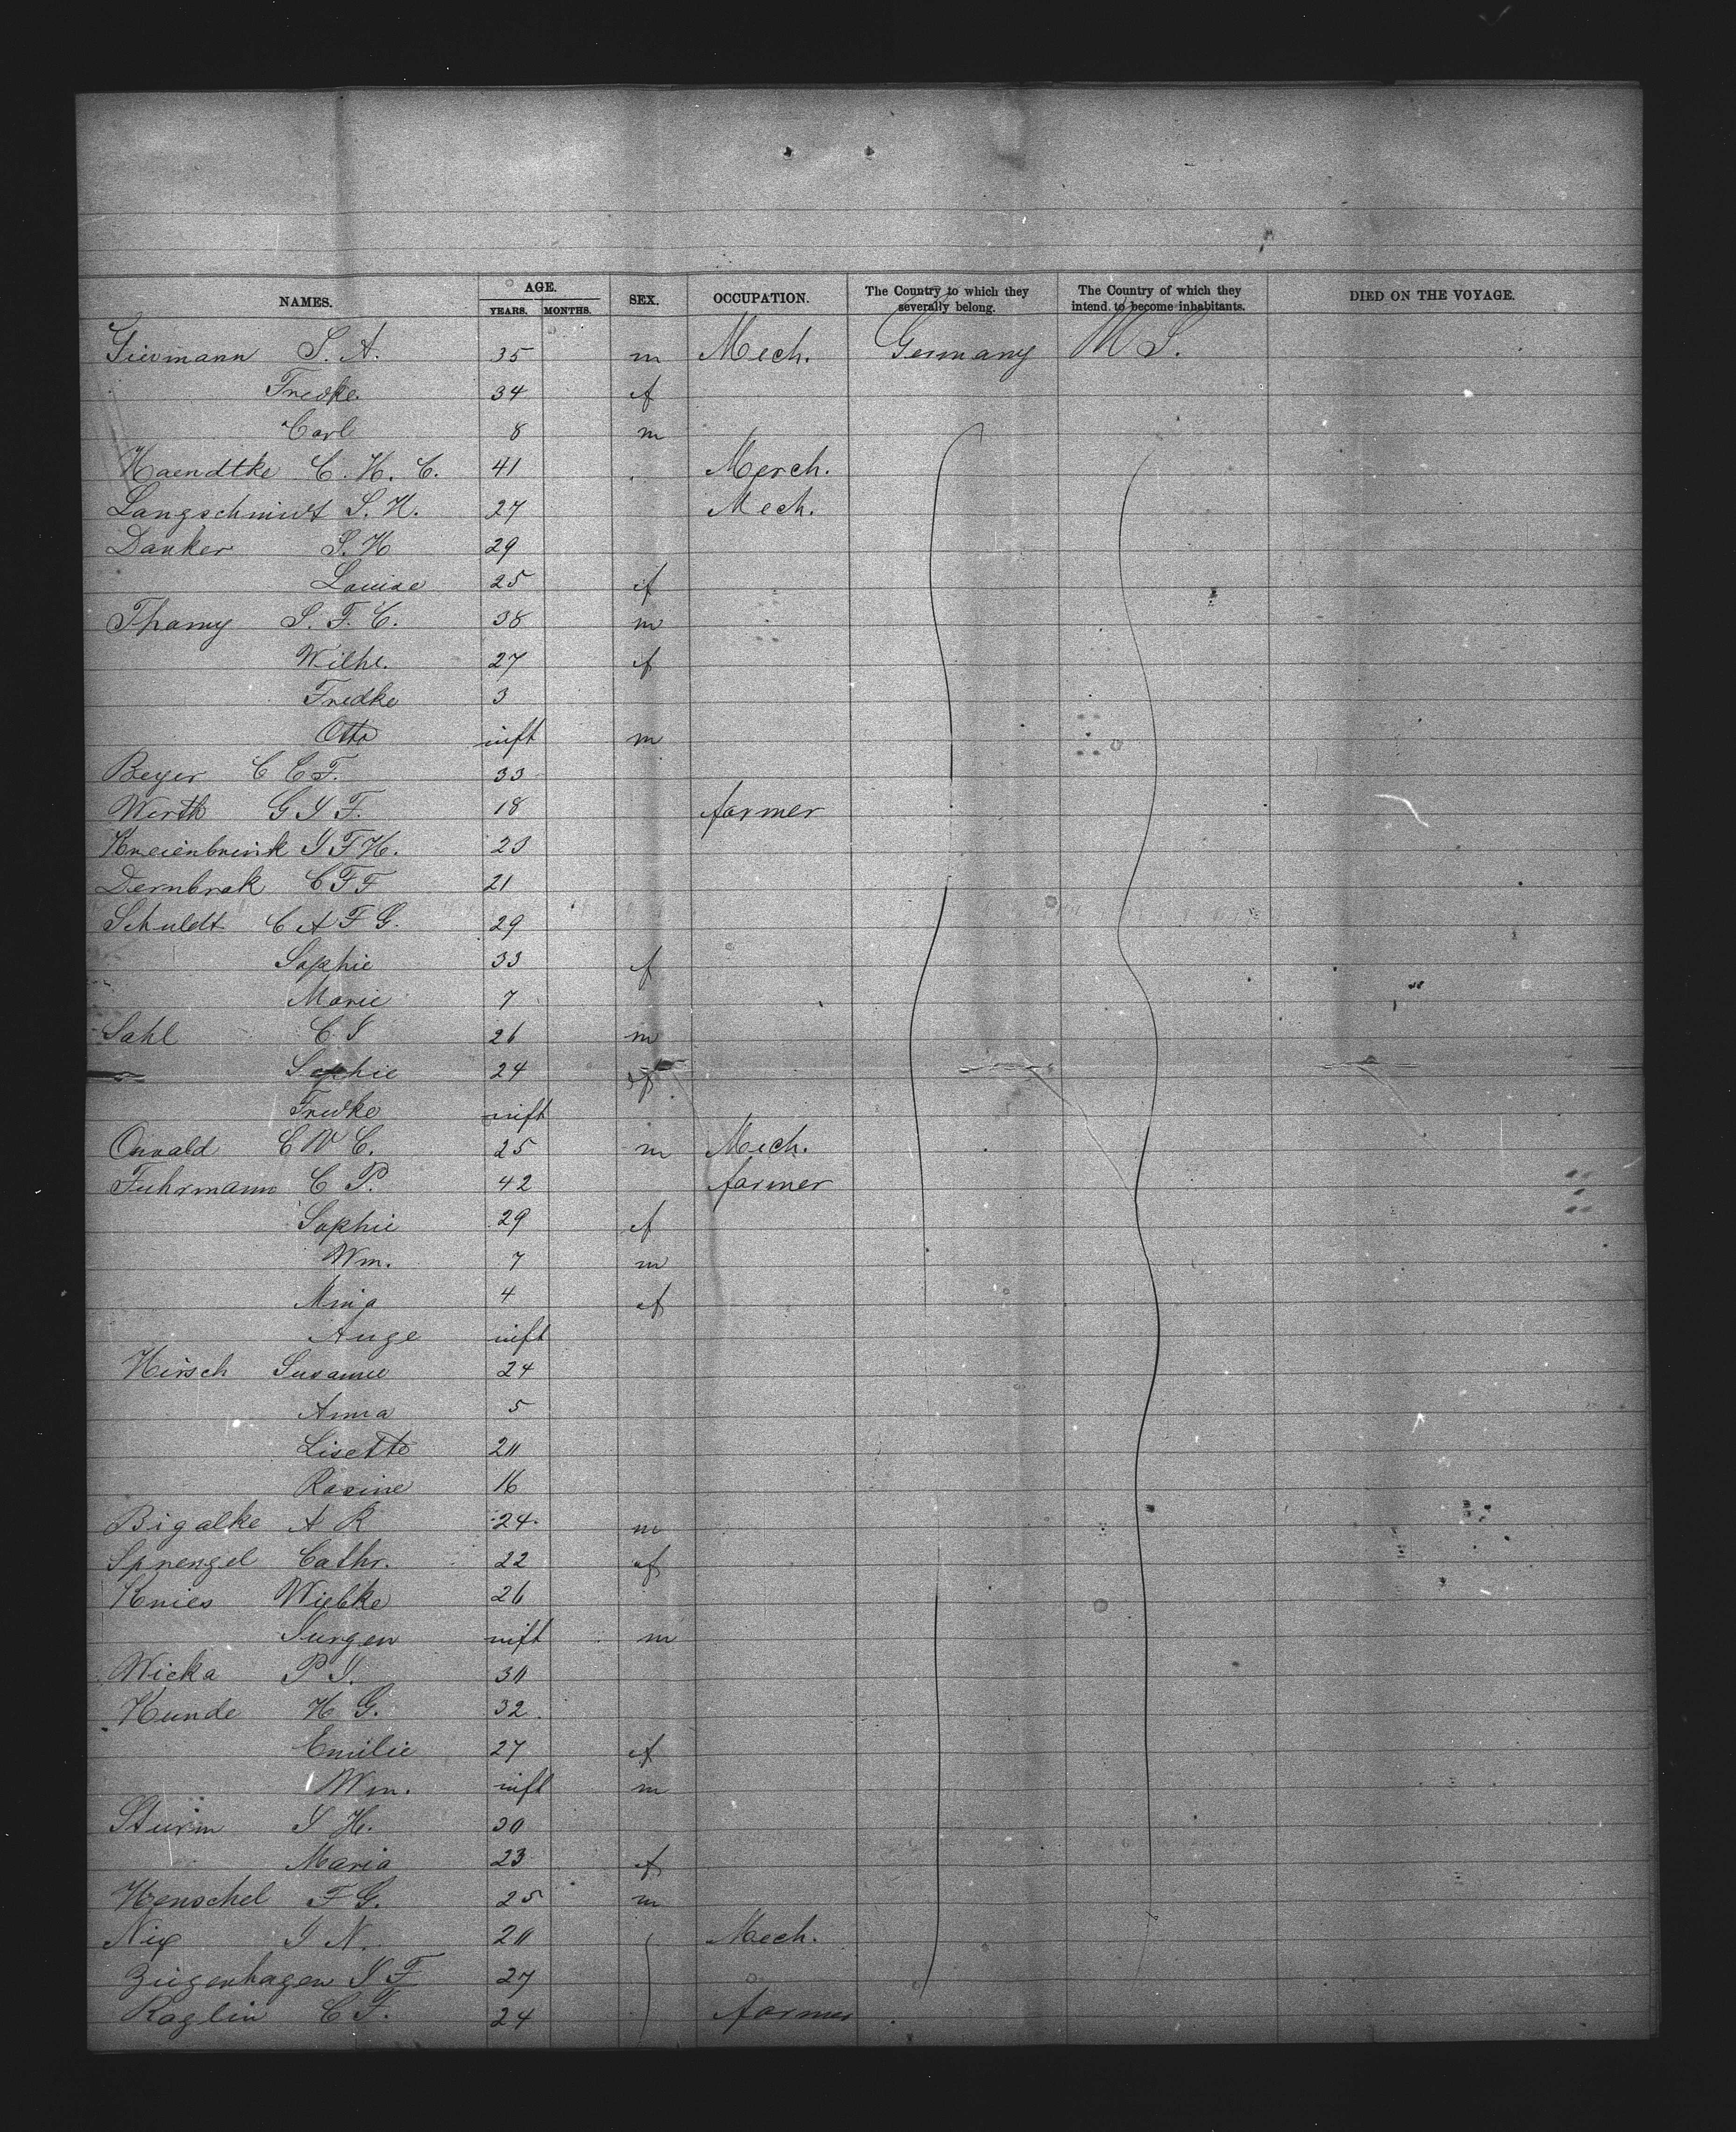 NAMES. AGE. YEARS. MONTHS. SEX. OCCUPATION. The Country to which they severally belong. The Country of which they intend to become inhabitants. DIED ON THE VOYAGE.
Sievmann S. A. 35 m Mech. Germany U S.
Fredke 34 f
Carl 8 m
Haendtke C. H. C. 41 Merch.
Langschmidt S. H. 27 Mech.
Danker S. H 29
Louise 25 f
Thamy S. F. C. 38 m
Wilhe. 27 f
Fredke 3
Otto inft m
Beyer C C F. 33
Werth G J F. 18 farmer
Kreienbrink J F H. 23
Dernbrak C F F 21
Schuldt C A F G. 29
Sophie 33 f
Marie 7
Sahl C J 26 m
Sophie 24 f
Fredke inft
Oswald C W C. 25 m Mech.
Fuhrmann C P. 42 farmer
Sophie 29 f
Wm. 7 m
Minja 4 f
Auge inft
Hirsch Susanne 24
Anna 5
Lisette 20
Rosine 16
Bigalke A R 24 m
Sprengel Cathr. 22 f
Knies Wiebke 26
Jurgen inft m
Wicka P J. 30
Kunde H G. 32
Emilie 27 f
Wm. inft m
Sturm J H. 30
Maria 23 f
Henschel F G. 25 m
Nix J N. 20 Mech.
Ziegenhagen J F 27
Raglin C F. 24 farmer